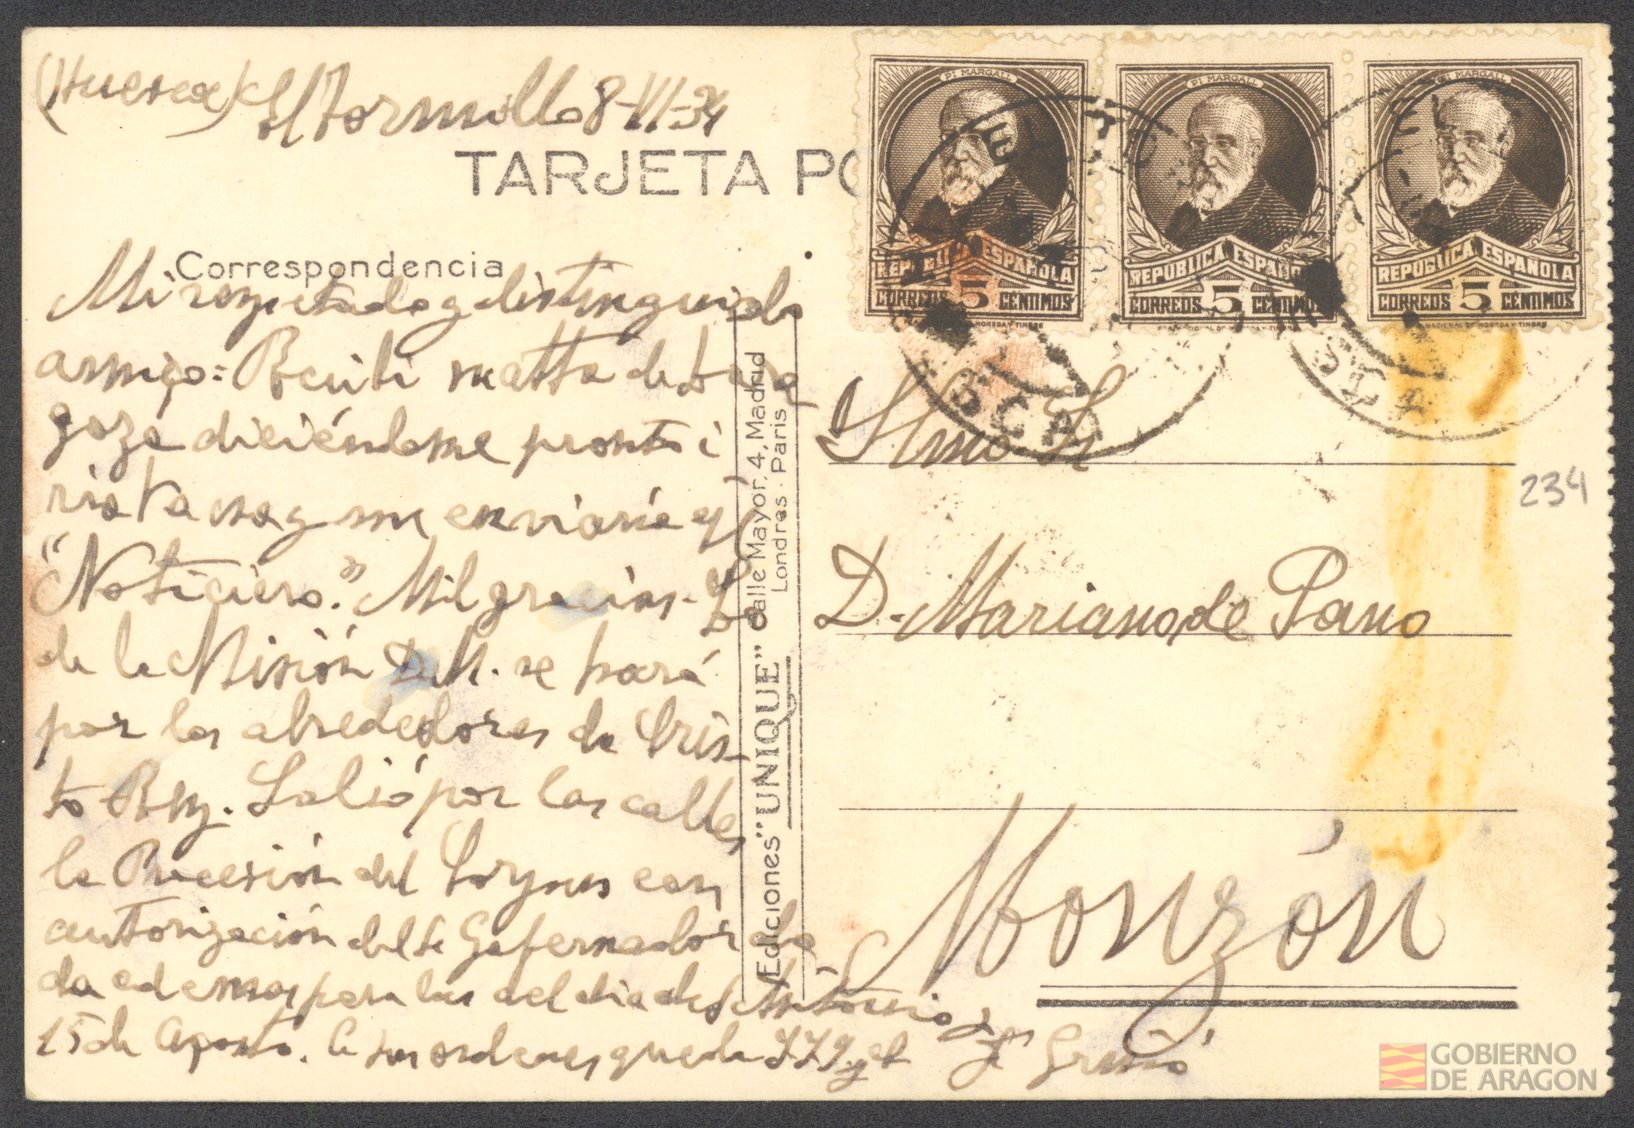 (Huesca) El Tormillo 8-VI-34
TARJETA PO
Correspondencia
Mi respetado y distinguido
amigo: Recibí de Zara
goza diciéndome pronto i
ría Vd. y me enviaría el
"Noticiero." Mil gracias. Lo
de la Misión D.M. se hará
por los alrededores de Cris
to Rey. Salió por las calles
la Procesión del Corpus con
autorización del Sr Gobernador da
da además para las del día de S Antonio y
15 de Agosto. A sus órdenes queda
Ediciones "UNIQUE" Calle Mayor, 4, Madrid
Londres - Paris
PI MARGALL
REPUBLICA ESPAÑOLA
CORREOS 5 CENTIMOS
PI MARGALL
REPUBLICA ESPAÑOLA
CORREOS 5 CENTIMOS
PI MARGALL
REPUBLICA ESPAÑOLA
CORREOS 5 CENTIMOS
Ilmo. Sr
D. Mariano de Pano
Monzón
234
GOBIERNO
DE ARAGON